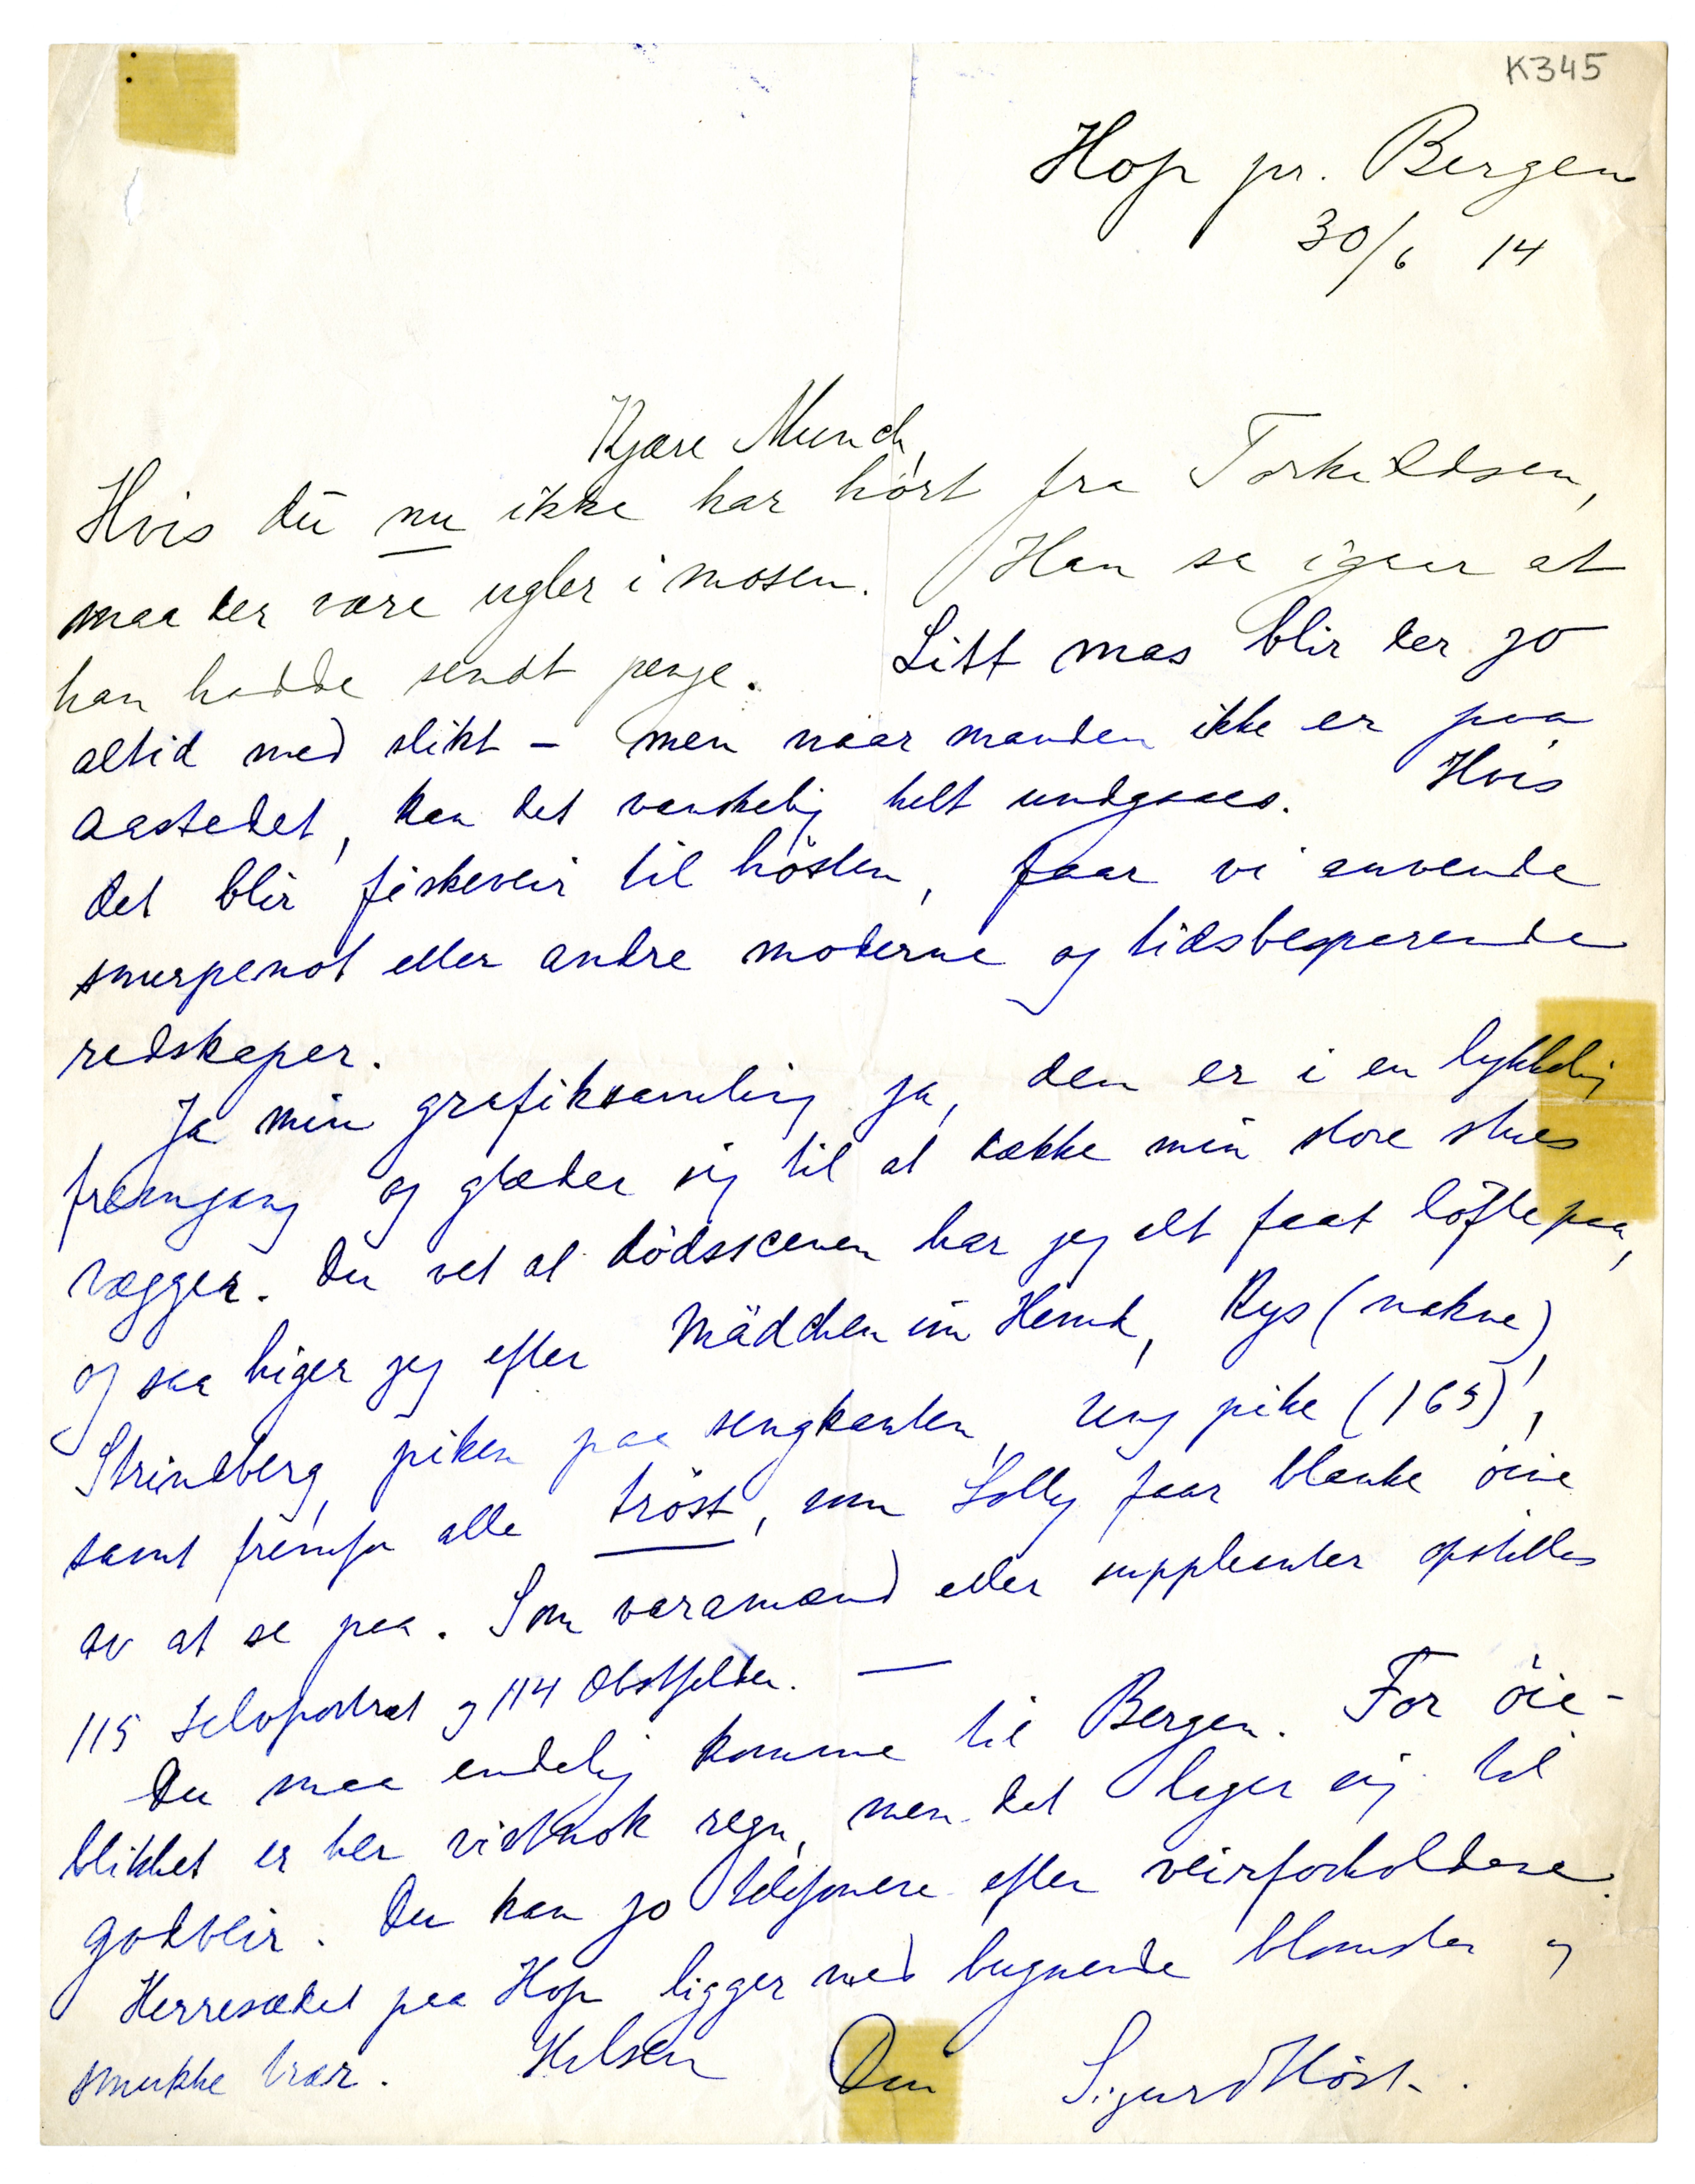 K345
Hop pr. Bergen
30/6 14
Kjære Munch,
Hvis du nu ikke har hört fra Torkildsen,
maa der være ugler i mosen. Han sa igaar at
han hadde sendt penge. Litt mas blir der jo
altid med slikt – men naar manden ikke er paa
aastedet, kan det vanskelig helt undgaaes. Hvis
det blir fiskeveir til hösten, faar vi anvende
snurpenot eller andre moderne og tidsbesparende
redskaper.
Ja min grafiksamling ja, den er i en lykkelig
fremgang og glæder sig til at dække min store stues
vægger. Du vet at dödsscenen har jeg alt faat löfte paa,
og saa higer jeg efter Mädchen im Hemd, Kys (nakne),
Strindberg, piken paa sengkanten, Ung pike (165),
samt fremfor alle tröst, som Lolly faar blanke öine
av at se paa. Som varamænd eller suppleanter opstilles
115 selvportræt og 114 Obstfelder. —
Du maa endelig komme til Bergen. For öie-
blikket er her vistnok regn, men det lager sig til
godveir. Du kan jo telefonere efter veirforholdene.
Herresædet paa Hop ligger med bugnende blomster og
smukke trær. Hilsen Din Sigurd Höst.